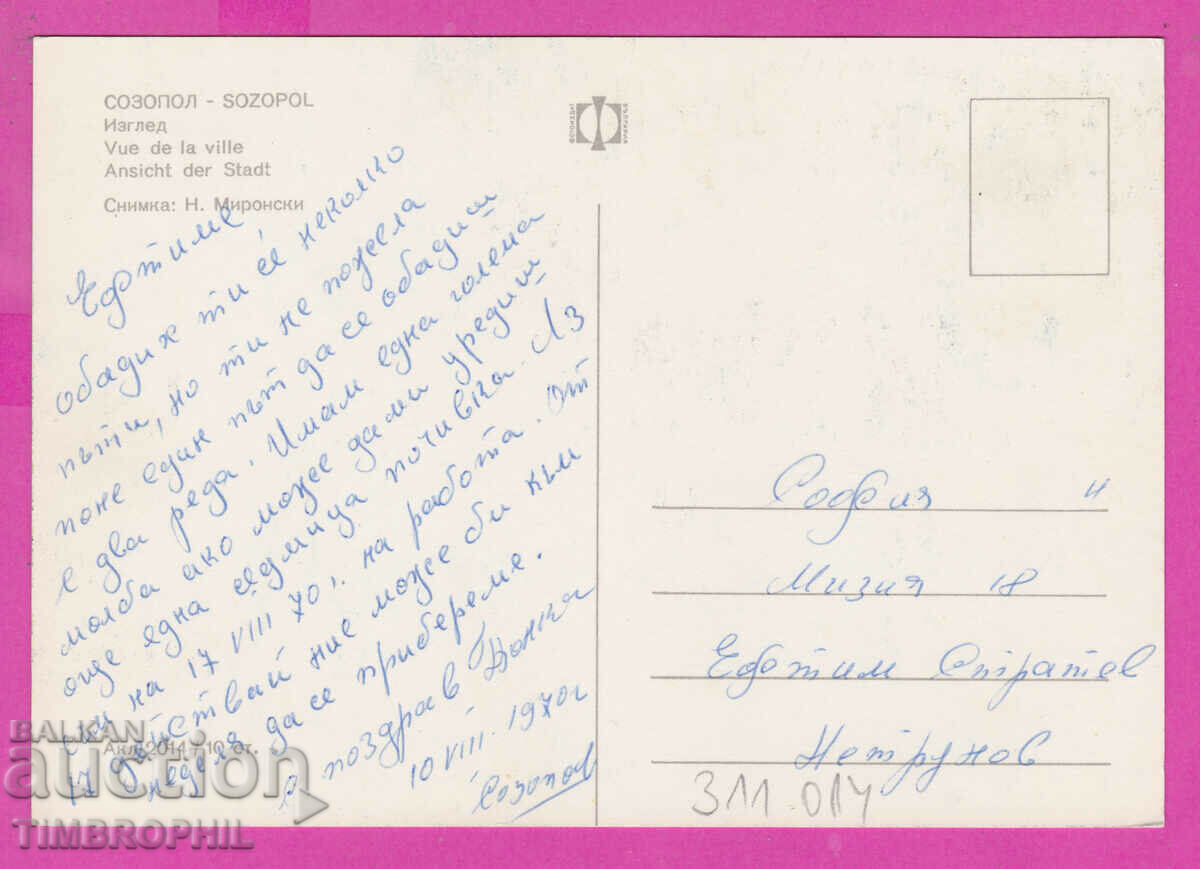 СОЗОПОЛ - SOZOPOL
Изглед
Vue de la ville
Ansicht der Stadt
Снимка: Н. Миронски
Ефтиме,
обадих ти се неколко
пъти, но ти не пожела
поне един път да се обадиш
с два реда. Имам една голема
молба ако може да ми уредиш
още една седмица почивка. Аз
съм на 17 VIII 70 г. на работа. От
17 действай ние може би към
неделя да се прибереме.
с поздрав Донка
10 VIII. 1970 г
Созопол
Акл 2014 10 ст.
София
Мизия 18
Ефтим Стратев
Нетрунов
311 014
BALKAN
auction
TIMBROPHIL